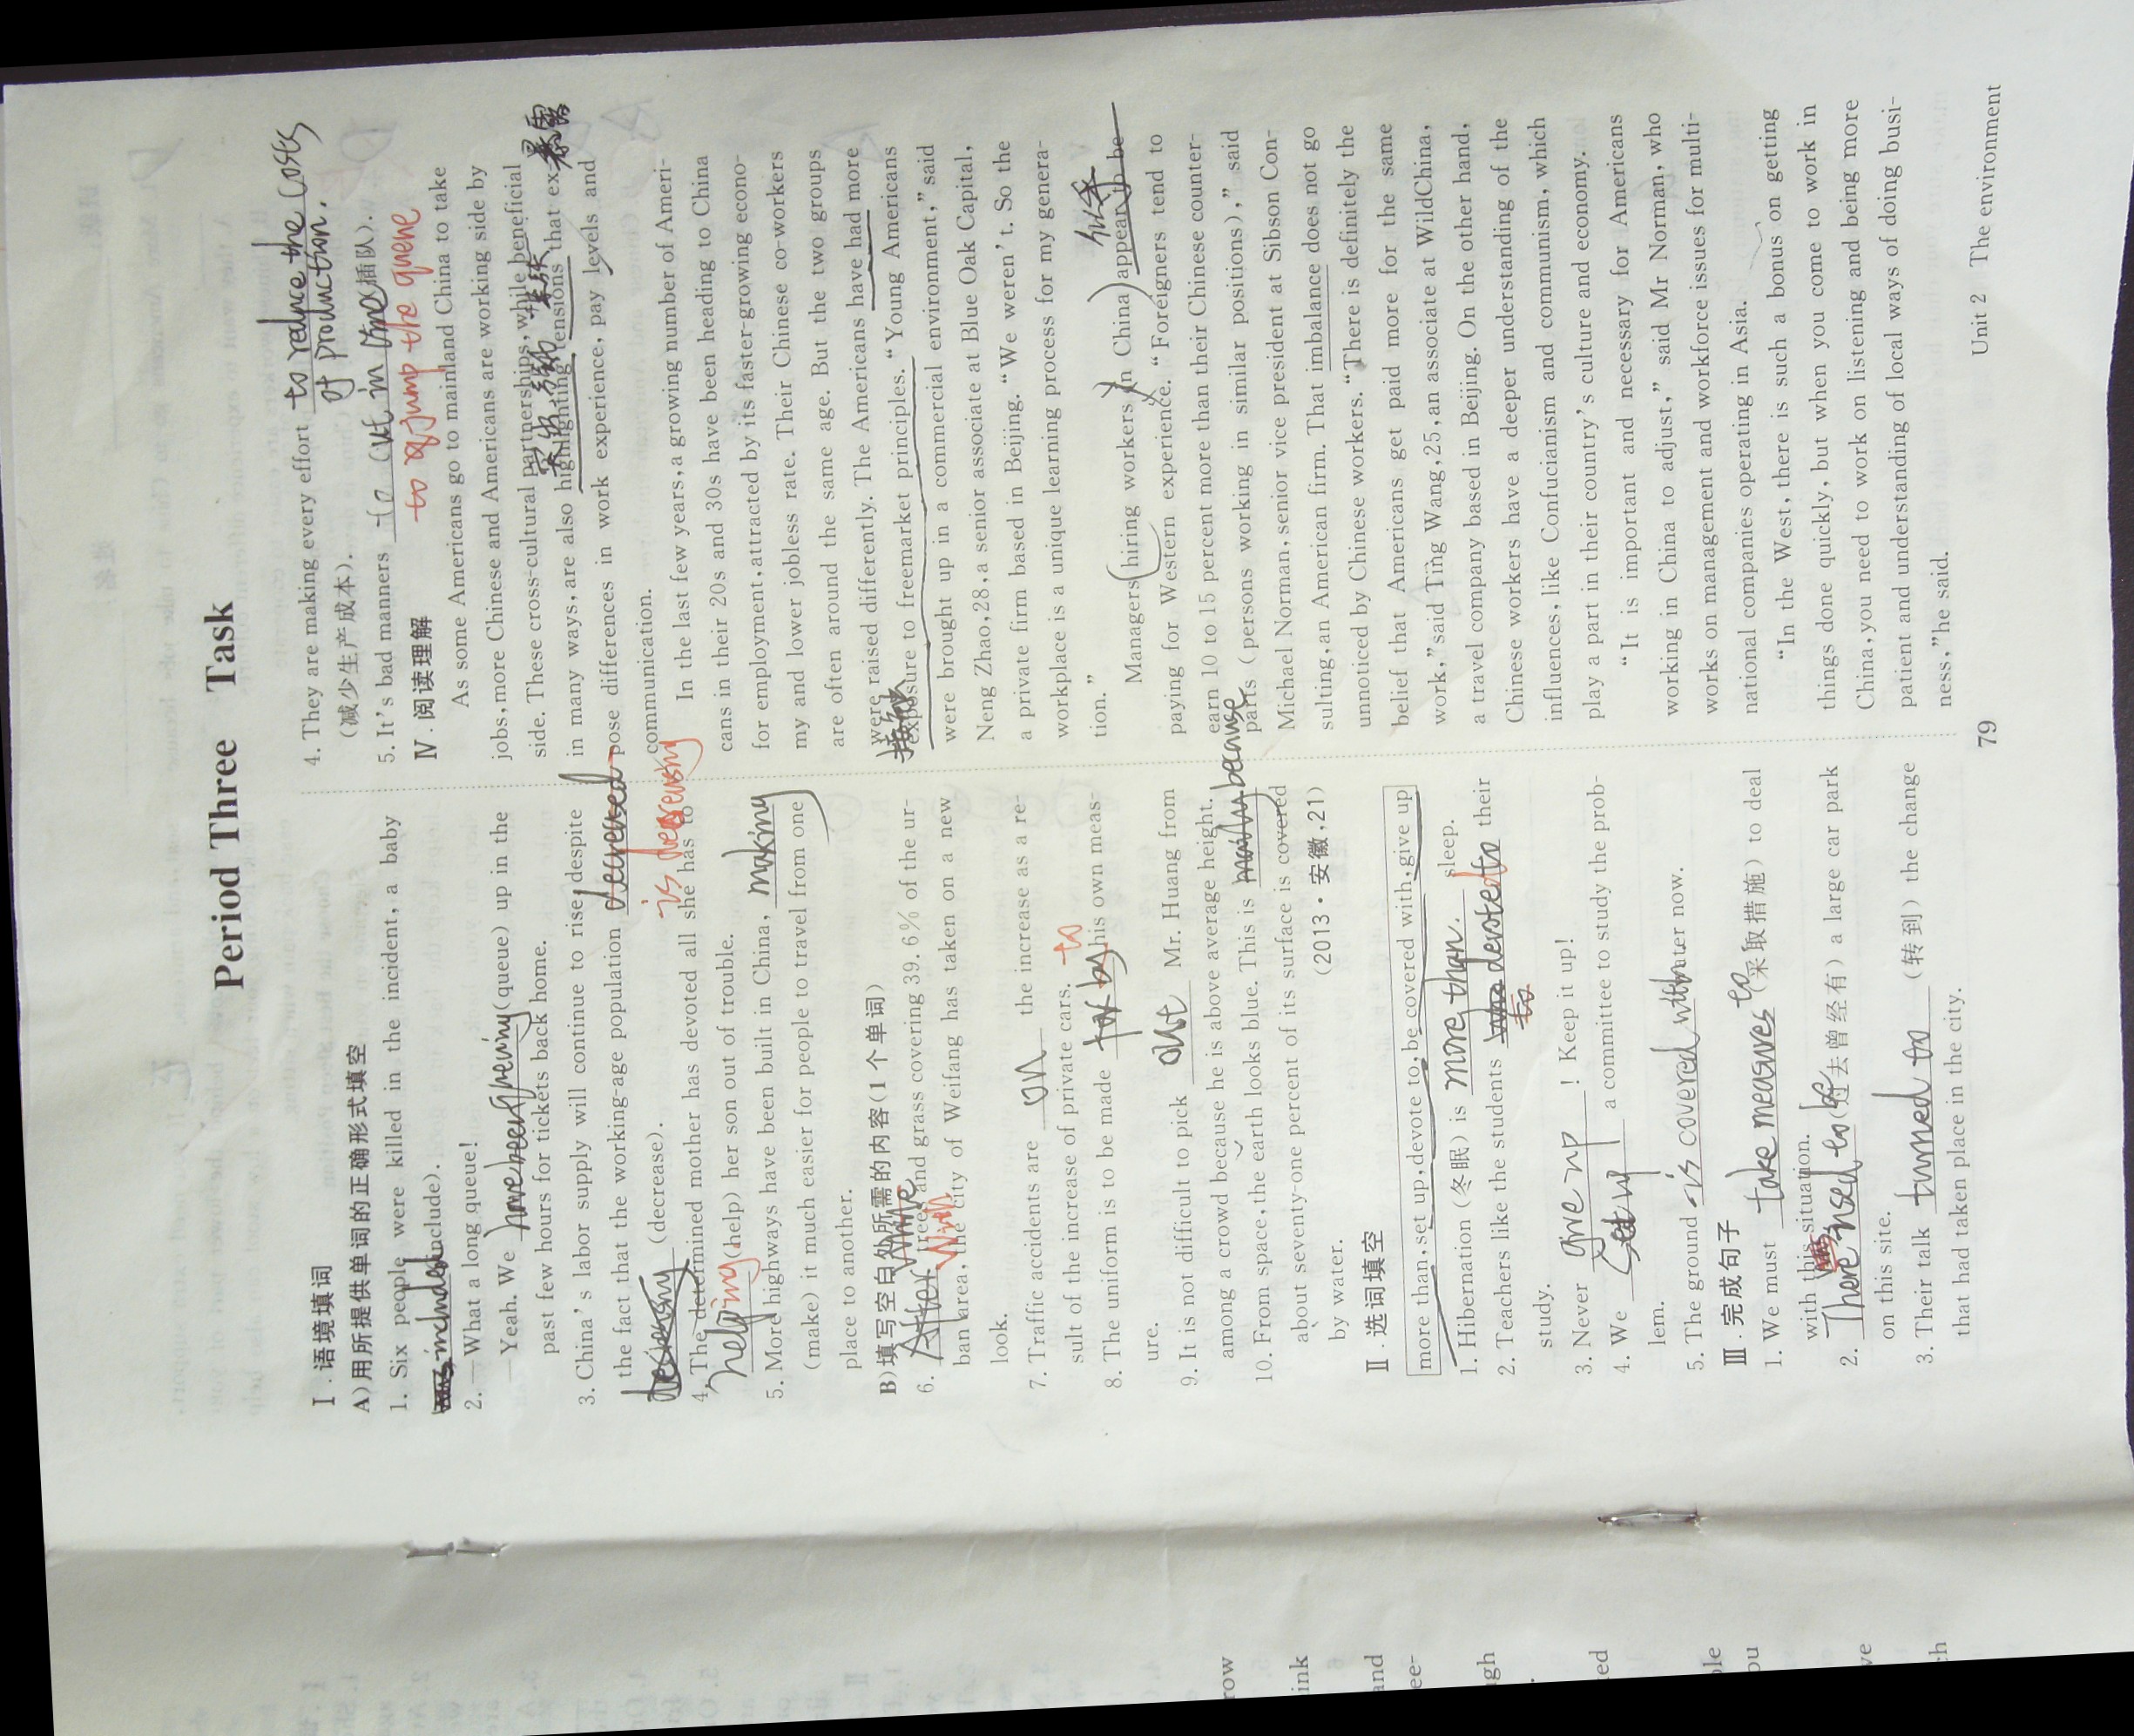 Period Three Task
Ⅰ.语境填词
A)用所提供单词的正确形式填空
1. Six people were killed in the incident, a baby
included (include).
2. —What a long queue!
—Yeah. We have been queueing (queue) up in the
past few hours for tickets back home.
3. China's labor supply will continue to rise, despite
the fact that the working-age population decreased
is decreasing
decreasing (decrease).
4. The determined mother has devoted all she has to
helping (help) her son out of trouble.
5. More highways have been built in China, making
(make) it much easier for people to travel from one
place to another.
B)填写空白处所需的内容(1个单词)
6. After trees and grass covering 39.6% of the ur-
With
ban area, the city of Weifang has taken on a new
look.
7. Traffic accidents are on the increase as a re-
sult of the increase of private cars.
8. The uniform is to be made for by his own meas-
to
ure.
9. It is not difficult to pick out Mr. Huang from
among a crowd because he is above average height.
10. From space, the earth looks blue. This is mainly because
about seventy-one percent of its surface is covered
by water. (2013·安徽,21)
Ⅱ.选词填空
more than, set up, devote to, be covered with, give up
1. Hibernation (冬眠) is more than sleep.
2. Teachers like the students who devoted to their
study.
3. Never give up ! Keep it up!
4. We set up a committee to study the prob-
lem.
5. The ground is covered with water now.
Ⅲ.完成句子
1. We must take measures to (采取措施) to deal
with this situation.
2. There used to be (过去曾经有) a large car park
on this site.
3. Their talk turned to (转到) the change
that had taken place in the city.
4. They are making every effort to reduce the costs
of production.
(减少生产成本).
5. It's bad manners to cut in line (插队).
to jump the queue
Ⅳ.阅读理解
As some Americans go to mainland China to take
jobs, more Chinese and Americans are working side by
side. These cross-cultural partnerships, while beneficial
突出 紧张 暴露
in many ways, are also highlighting tensions that ex-
pose differences in work experience, pay levels and
communication.
In the last few years, a growing number of Ameri-
cans in their 20s and 30s have been heading to China
for employment, attracted by its faster-growing econo-
my and lower jobless rate. Their Chinese co-workers
are often around the same age. But the two groups
were raised differently. The Americans have had more
接触
exposure to freemarket principles. "Young Americans
were brought up in a commercial environment," said
Neng Zhao, 28, a senior associate at Blue Oak Capital,
a private firm based in Beijing. "We weren't. So the
workplace is a unique learning process for my genera-
tion."
似乎
Managers (hiring workers in China) appear to be
paying for Western experience. "Foreigners tend to
earn 10 to 15 percent more than their Chinese counter-
parts (persons working in similar positions)," said
Michael Norman, senior vice president at Sibson Con-
sulting, an American firm. That imbalance does not go
unnoticed by Chinese workers. "There is definitely the
belief that Americans get paid more for the same
work," said Ting Wang, 25, an associate at WildChina,
a travel company based in Beijing. On the other hand,
Chinese workers have a deeper understanding of the
influences, like Confucianism and communism, which
play a part in their country's culture and economy.
"It is important and necessary for Americans
working in China to adjust," said Mr Norman, who
works on management and workforce issues for multi-
national companies operating in Asia.
"In the West, there is such a bonus on getting
things done quickly, but when you come to work in
China, you need to work on listening and being more
patient and understanding of local ways of doing busi-
ness," he said.
79
Unit 2 The environment
row
ink
and
ee-
gh
ed
ple
ou
ve
ch